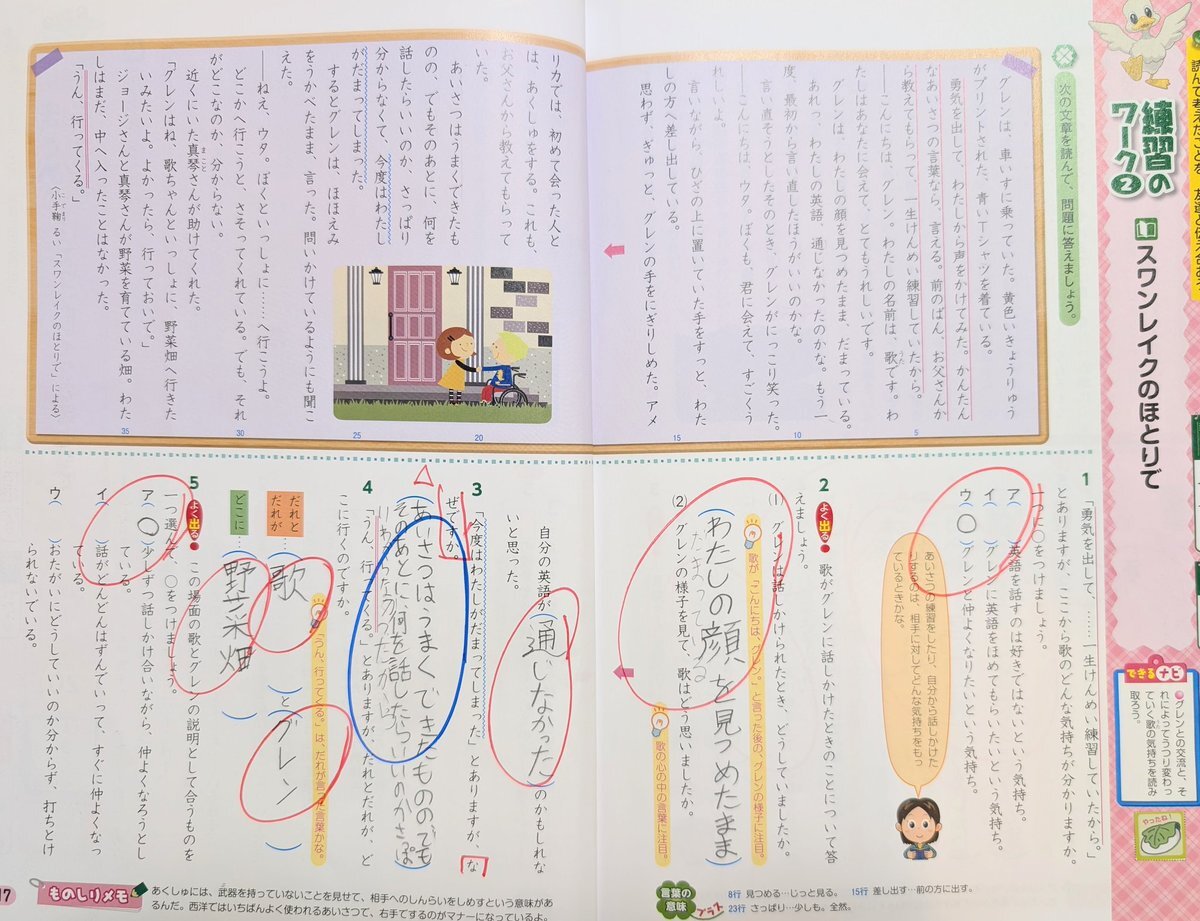 練習のワーク❷
スワンレイクのほとりで
次の文章を読んで、問題に答えましょう。
グレンは、車いすに乗っていた。黄色いきょうりゅう
がプリントされた、青いTシャツを着ている。
勇気を出して、わたしから声をかけてみた。かんたん
なあいさつの言葉なら、言える。前のばん、お父さんか
ら教えてもらって、一生けんめい練習していたから。
――こんにちは、グレン。わたしの名前は、歌です。わ
たしはあなたに会えて、とてもうれしいです。
グレンは、わたしの顔を見つめたまま、だまっている。
あれっ、わたしの英語、通じなかったのかな。もう一
度、最初から言い直したほうがいいのかな。
言い直そうとしたそのとき、グレンがにっこり笑った。
――こんにちは、ウタ。ぼくも、君に会えて、すごくう
れしいよ。
言いながら、ひざの上に置いていた手をすっと、わた
しの方へ差し出している。
思わず、ぎゅっと、グレンの手をにぎりしめた。アメ
リカでは、初めて会った人と
は、あくしゅをする。これも、
お父さんから教えてもらって
いた。
あいさつはうまくできたも
のの、でもそのあとに、何を
話したらいいのか、さっぱり
分からなくて、今度はわたし
がだまってしまった。
するとグレンは、ほほえみ
をうかべたまま、言った。問いかけているようにも聞こ
えた。
――ねえ、ウタ。ぼくといっしょに……へ行こうよ。
どこかへ行こうと、さそってくれている。でも、それ
がどこなのか、分からない。
近くにいた真琴さんが助けてくれた。
「グレンはね、歌ちゃんといっしょに、野菜畑へ行きた
いみたいよ。よかったら、行っておいで。」
ジョージさんと真琴さんが野菜を育てている畑。わた
しはまだ、中へ入ったことはなかった。
「うん、行ってくる。」
〈小手鞠 るい「スワンレイクのほとりで」による〉
5
10
15
20
25
30
35
1 「勇気を出して、……一生けんめい練習していたから。」
とありますが、ここから歌のどんな気持ちが分かりますか。
一つに○をつけましょう。
ア( )英語を話すのは好きではないという気持ち。
イ( )グレンに英語をほめてもらいたいという気持ち。
ウ(○)グレンと仲よくなりたいという気持ち。
あいさつの練習をしたり、自分から話しかけた
りするのは、相手に対してどんな気持ちをもっ
ているときかな。
2 よく出る 歌がグレンに話しかけたときのことについて答
えましょう。
(1) グレンは話しかけられたとき、どうしていましたか。
歌が、「こんにちは、グレン。」と言った後の、グレンの様子に注目。
(わたしの顔を見つめたまま
だまっている)
(2) グレンの様子を見て、歌はどう思いましたか。
歌の心の中の言葉に注目。
自分の英語が(通じなかった)のかもしれな
いと思った。
3 「今度はわたしがだまってしまった」とありますが、な
ぜですか。
(あいさつはうまくできたもののでも
そのあとに何を話したらいいのかさっぱ
4 「うん、行ってくる。」とありますが、だれとだれが、ど
こに行くのですか。
「うん、行ってくる。」は、だれが言った言葉かな。
だれと
だれが…(歌)と(グレン)
どこに…(野菜畑)
5 よく出る この場面の歌とグレンの説明として合うものを
一つ選んで、○をつけましょう。
ア(○)少しずつ話しかけ合いながら、仲よくなろうとし
ている。
イ( )話がどんどんはずんでいって、すぐに仲よくなっ
ている。
ウ( )おたがいにどうしていいのか分からず、打ちとけ
られないでいる。
できるナビ
●グレンとの交流と、そ
れによってうつり変わっ
ていく歌の気持ちを読み
取ろう。
やったね!
言葉の意味プラス
8行 見つめる…じっと見る。 15行 差し出す…前の方に出す。
23行 さっぱり…少しも。全然。
ものしりメモ
あくしゅには、武器を持っていないことを見せて、相手へのしんらいをしめすという意味があ
るんだ。西洋ではいちばんよく使われるあいさつで、右手でするのがマナーになっているよ。
17